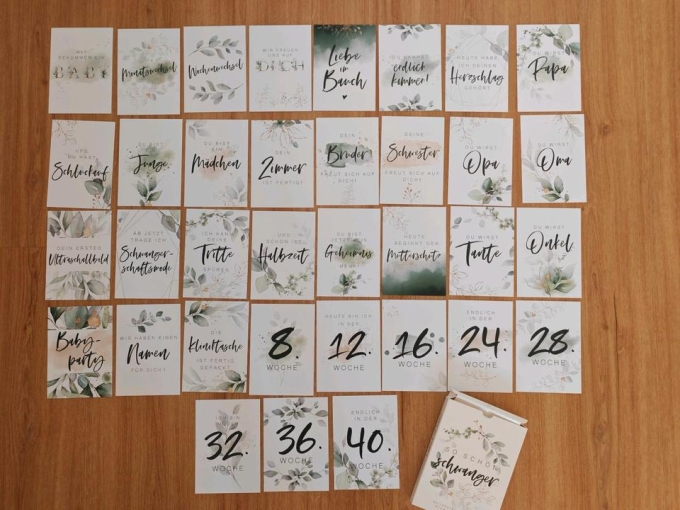 WIR
BEKOMMEN EIN
BABY
Monatswechsel
Wochenwechsel
WIR FREUEN
UNS AUF
DICH
Liebe
im
Bauch
DU KANNST
endlich
kommen!
HEUTE HABE
ICH DEINEN
Herzschlag
GEHÖRT
DU WIRST
Papa
UPS,
DU HAST
Schluckauf
DU BIST EIN
Junge
DU BIST
EIN
Mädchen
DEIN
Zimmer
IST FERTIG!
DEIN
Bruder
FREUT SICH AUF
DICH!
DEINE
Schwester
FREUT SICH AUF
DICH!
DU WIRST
Opa
DU WIRST
Oma
DEIN ERSTES
Ultraschallbild
AB JETZT
TRAGE ICH
Schwanger-
schaftsmode
ICH KANN
DEINE
Tritte
SPÜREN
UND
SCHON IST
Halbzeit
DU BIST
Geheimnis
MEHR!
HEUTE
BEGINNT DER
Mutterschutz
DU WIRST
Tante
DU WIRST
Onkel
Baby-
party
WIR HABEN EINEN
Namen
FÜR DICH!
DIE
Kliniktasche
IST FERTIG
GEPACKT
8.
WOCHE
HEUTE BIN ICH
IN DER
12.
WOCHE
16.
WOCHE
ENDLICH
IN DER
24.
WOCHE
28.
WOCHE
ICH BIN
32.
WOCHE
36.
WOCHE
ENDLICH
IN DER
40.
WOCHE
SO SCHÖN
schwanger